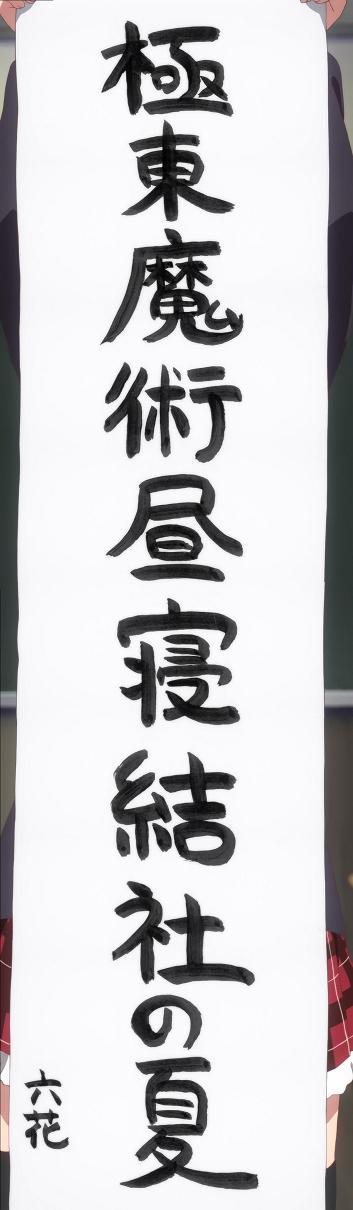 極東魔術昼寝結社の夏
六花